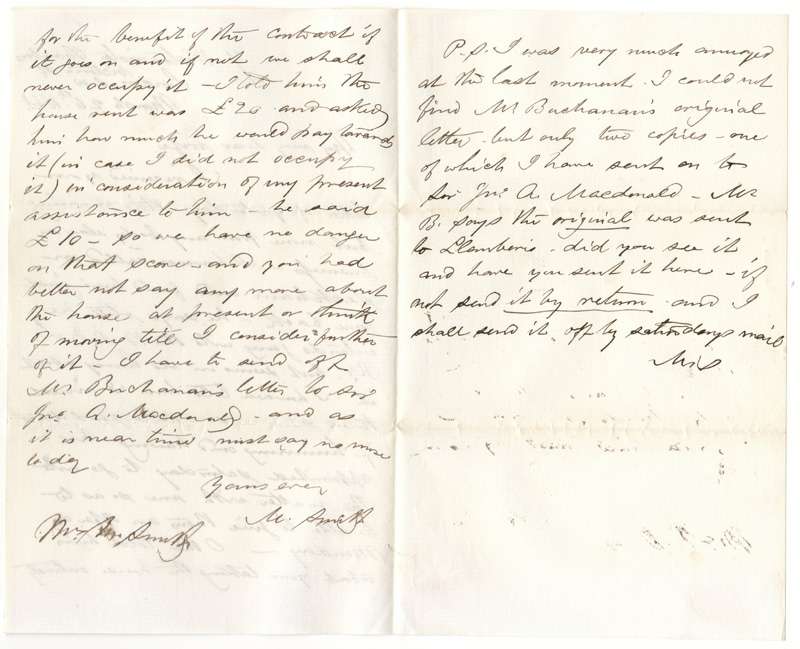 for the benefit of the contract if
it goes on and if not we shall
never occupy it – I told him the
house rent was £20 and asked
him how much he would pay towards
it (in case I did not occupy
it) in consideration of my present
assistance to him – he said
£10 – so we have no danger
on that score – and you had
better not say any more about
the house at present or think
of moving till I consider further
of it – I have to send off
Mr Buchanan's letter to Sir
Jno A. Macdonald – and as
it is near time must say no more
to day
Yours ever
M. Smith
Mrs Smith
P.S. I was very much annoyed
at the last moment. I could not
find Mr Buchanan's original
letter – but only two copies – one
of which I have sent on to
Sir Jno A. Macdonald – Mr
B. says the original was sent
to Llanberis – did you see it
and have you sent it here – if
not send it by return and I
shall send it off by saturdays mail
M.S.